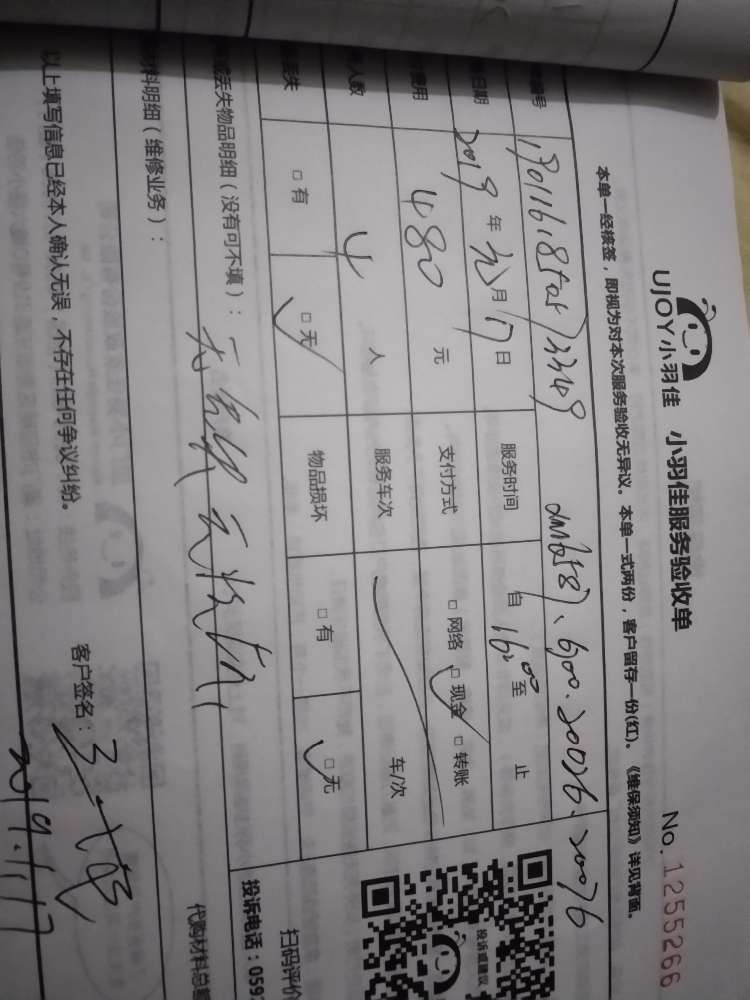 UJOY小羽佳 小羽佳服务验收单
No. 1255266
本单一经核签，即视为对本次服务验收无异议。本单一式两份，客户留存一份(红)。《维保须知》详见背面。
编号
日期 2019年元月17日 服务时间 自16:00至 止
费用 480 元 支付方式 □网络 □现金 □转账
人数 4 人 服务车次 车/次
丢失 □有 □无 物品损坏 □有 □无
或丢失物品明细（没有可不填）：
无丢失 无损坏
材料明细（维修业务）：
代购材料总
以上填写信息已经本人确认无误，不存在任何争议纠纷。
客户签名：
2019.1.17
投诉或建议
扫码评价
投诉电话：059